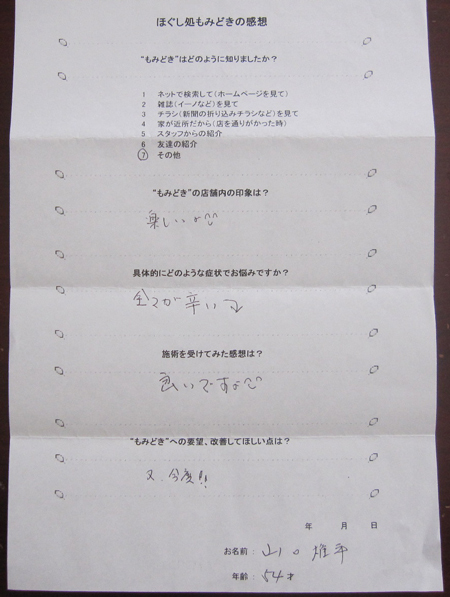 ほぐし処もみどきの感想
“もみどき”はどのように知りましたか？
1 ネットで検索して(ホームページを見て)
2 雑誌(イーノなど)を見て
3 チラシ(新聞の折り込みチラシなど)を見て
4 家が近所だから(店を通りがかった時)
5 スタッフからの紹介
6 友達の紹介
⑦ その他
“もみどき”の店舗内の印象は？
楽しいよ
具体的にどのような症状でお悩みですか？
全てが辛い
施術を受けてみた感想は？
良いですよ
“もみどき”への要望、改善してほしい点は？
又、今度!!
年 月 日
お名前： 山口 雄平
年齢： 54才